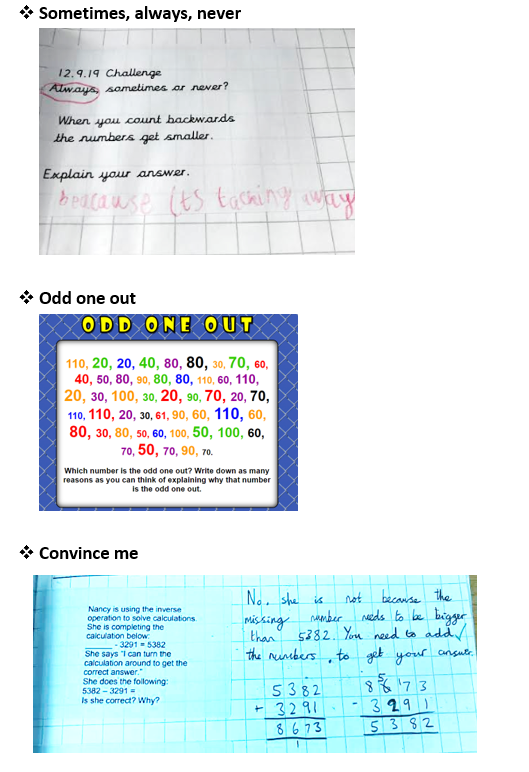 ❖ Sometimes, always, never
12.9.19 Challenge
Always, sometimes or never?
When you count backwards
the numbers get smaller.
Explain your answer.
beacause its tacking away
❖ Odd one out
ODD ONE OUT
110, 20, 20, 40, 80, 80, 30, 70, 60,
40, 50, 80, 90, 80, 80, 110, 60, 110,
20, 30, 100, 30, 20, 90, 70, 20, 70,
110, 110, 20, 30, 61, 90, 60, 110, 60,
80, 30, 80, 50, 60, 100, 50, 100, 60,
70, 50, 70, 90, 70.
Which number is the odd one out? Write down as many
reasons as you can think of explaining why that number
is the odd one out.
❖ Convince me
Nancy is using the inverse
operation to solve calculations.
She is completing the
calculation below:
_____ - 3291 = 5382
She says "I can turn the
calculation around to get the
correct answer."
She does the following:
5382 – 3291 =
Is she correct? Why?
No, she is not because the
missing number needs to be bigger
than 5382. You need to add ✓
the numbers, to get your answer.
5382
+ 3291
8673
1
5
8 6 ¹7 3
- 3291
5382